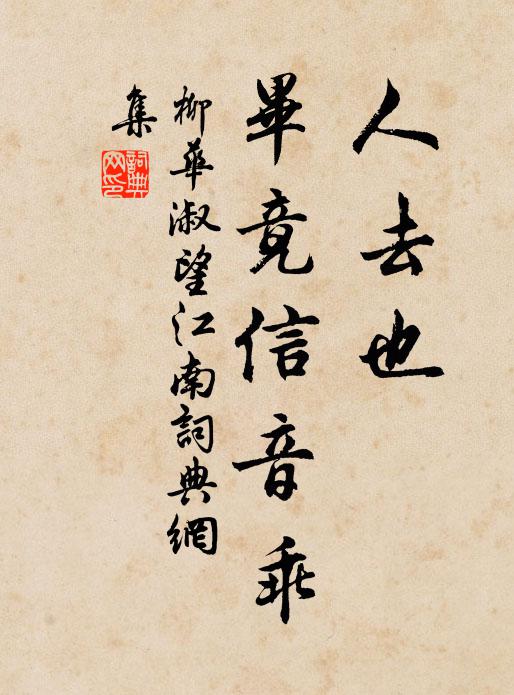 人去也
畢竟信音乖
柳華淑望江南詞典網
集
詞典
网印